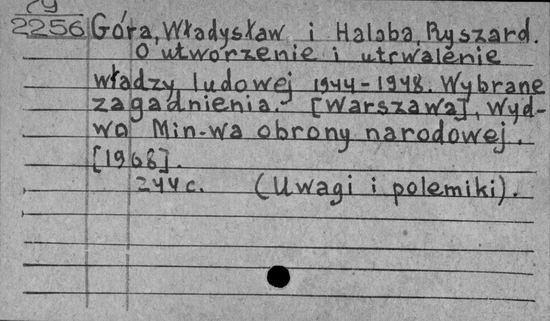 29
2256 Góra, Władysław i Halaba, Ryszard.
O utworzenie i utrwalenie
władzy ludowej 1944-1948. Wybrane
zagadnienia. [Warszawa], Wyd-
wo Min-wa obrony narodowej.
[1968].
244 c. (Uwagi i polemiki).